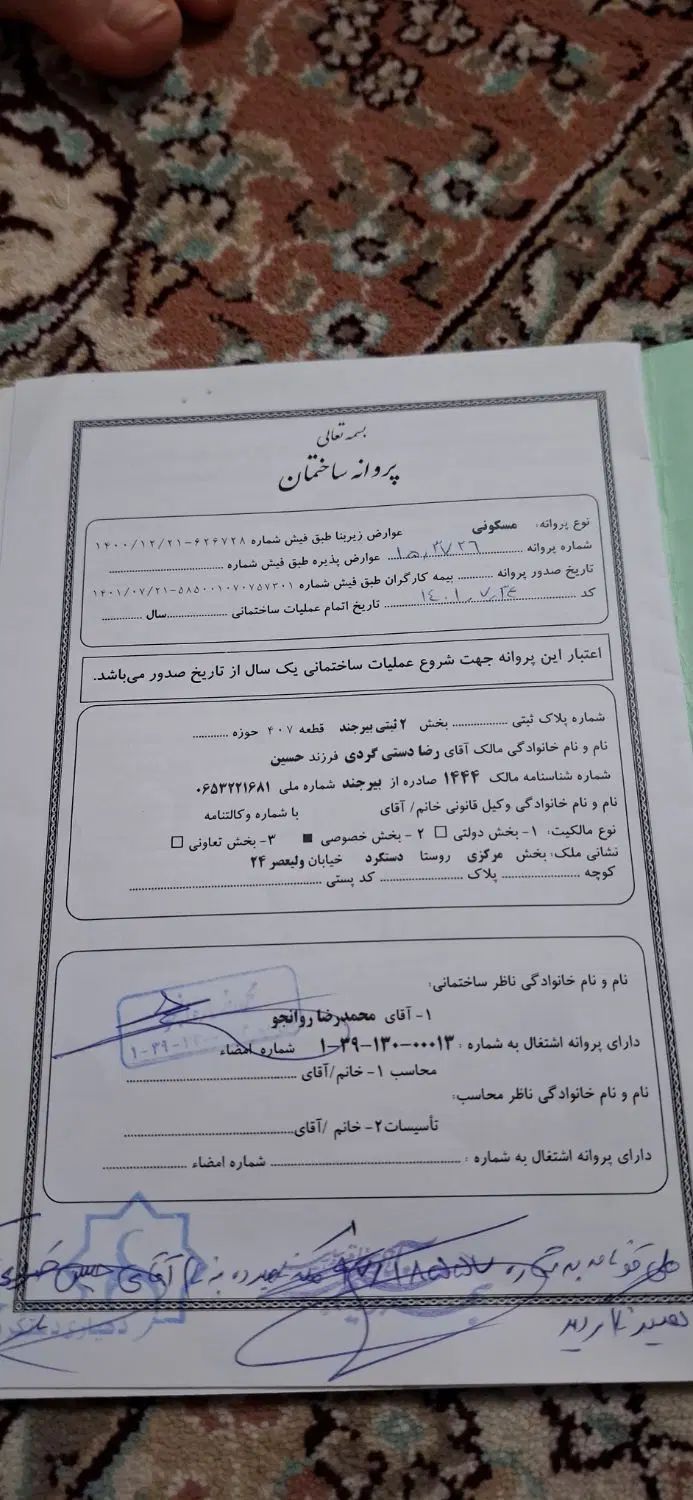 بسمه تعالی
پروانه ساختمان
نوع پروانه: مسکونی عوارض زیربنا طبق فیش شماره ۶۲۶۷۲۸-۱۴۰۰/۱۲/۲۱
شماره پروانه .................. عوارض پذیره طبق فیش شماره ..................
تاریخ صدور پروانه ........... بیمه کارگران طبق فیش شماره ۵۸۵۰۰۱۰۷۰۷۵۷۳۰۱-۱۴۰۱/۰۷/۲۱
کد .................. تاریخ اتمام عملیات ساختمانی ..................سال ............
اعتبار این پروانه جهت شروع عملیات ساختمانی یک سال از تاریخ صدور می‌باشد.
شماره پلاک ثبتی ................. بخش ۲ ثبتی بیرجند قطعه ۴۰۷ حوزه ...........
نام و نام خانوادگی مالک آقای رضا دستی گردی فرزند حسین
شماره شناسنامه مالک ۱۴۴۴ صادره از بیرجند شماره ملی ۰۶۵۳۲۲۱۶۸۱
نام و نام خانوادگی وکیل قانونی خانم/ آقای با شماره وکالتنامه
نوع مالکیت: ۱- بخش دولتی □ ۲ - بخش خصوصی ■ ۳- بخش تعاونی □
نشانی ملک: بخش مرکزی روستا دستگرد خیابان ولیعصر ۲۴
کوچه .................. پلاک .................. کد پستی ..................
نام و نام خانوادگی ناظر ساختمانی:
۱- آقای محمدرضا روانجو
دارای پروانه اشتغال به شماره : ۰۰۰۱۳-۱۳۰-۳۹-۱ شماره امضاء
محاسب ۱- خانم/آقای ..................
نام و نام خانوادگی ناظر محاسب:
تأسیسات۲- خانم /آقای..................
دارای پروانه اشتغال به شماره : .................. شماره امضاء ..................